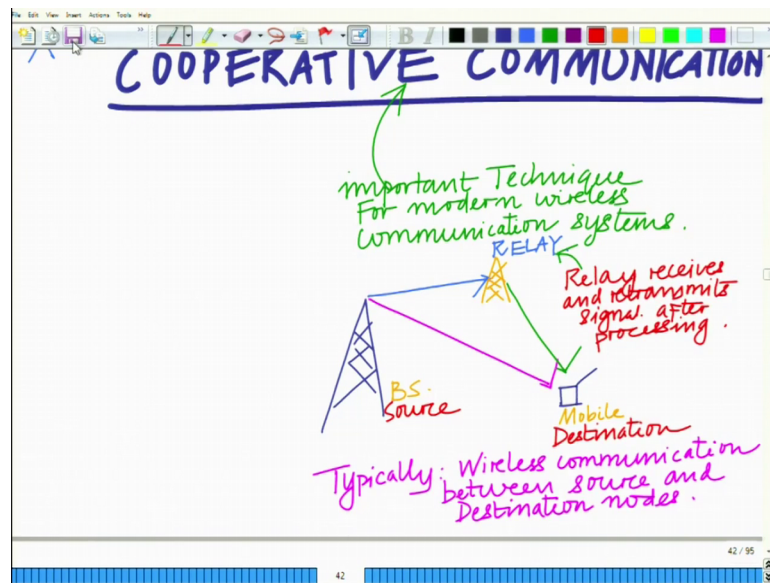 File Edit View Insert Actions Tools Help
B I
COOPERATIVE COMMUNICATION
important Technique
For modern wireless
communication systems.
RELAY
Relay receives
and retransmits
signal after
processing.
BS.
Source
Mobile
Destination
Typically: Wireless communication
between source and
Destination nodes.
42 / 95
42